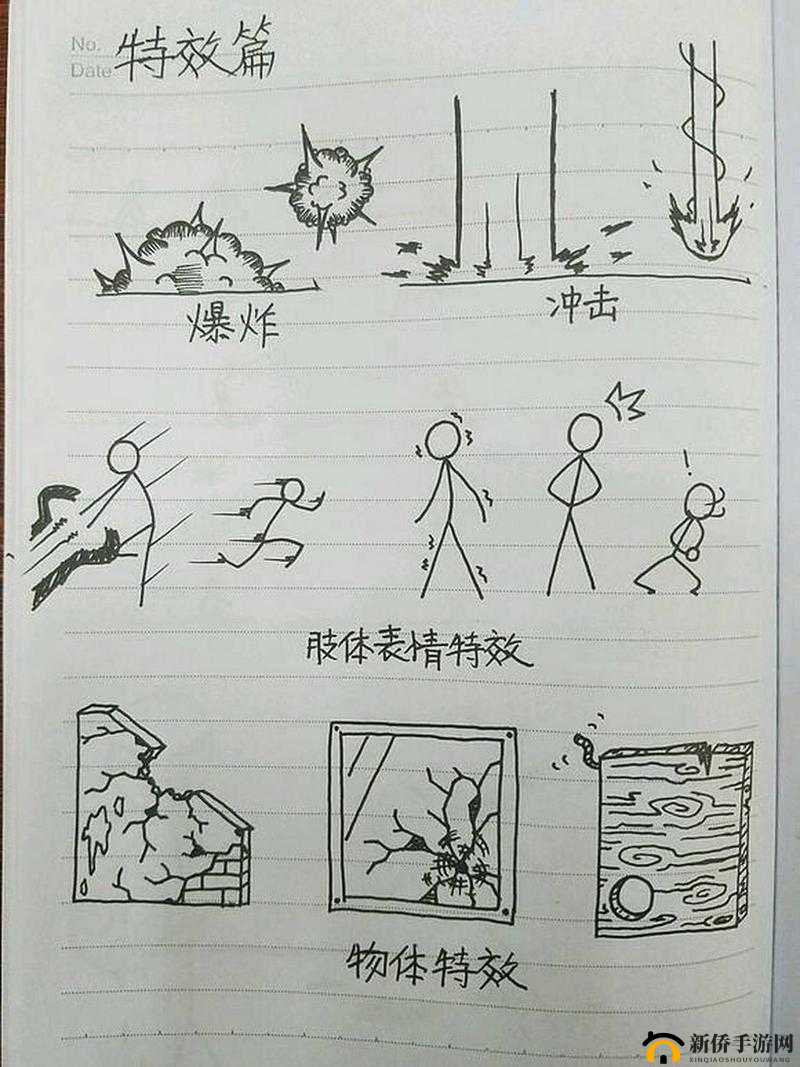 No.
Date
特效篇
爆炸
冲击
!
肢体表情特效
物体特效
新侨手游网
XINQIAOSHOUYOUWANG